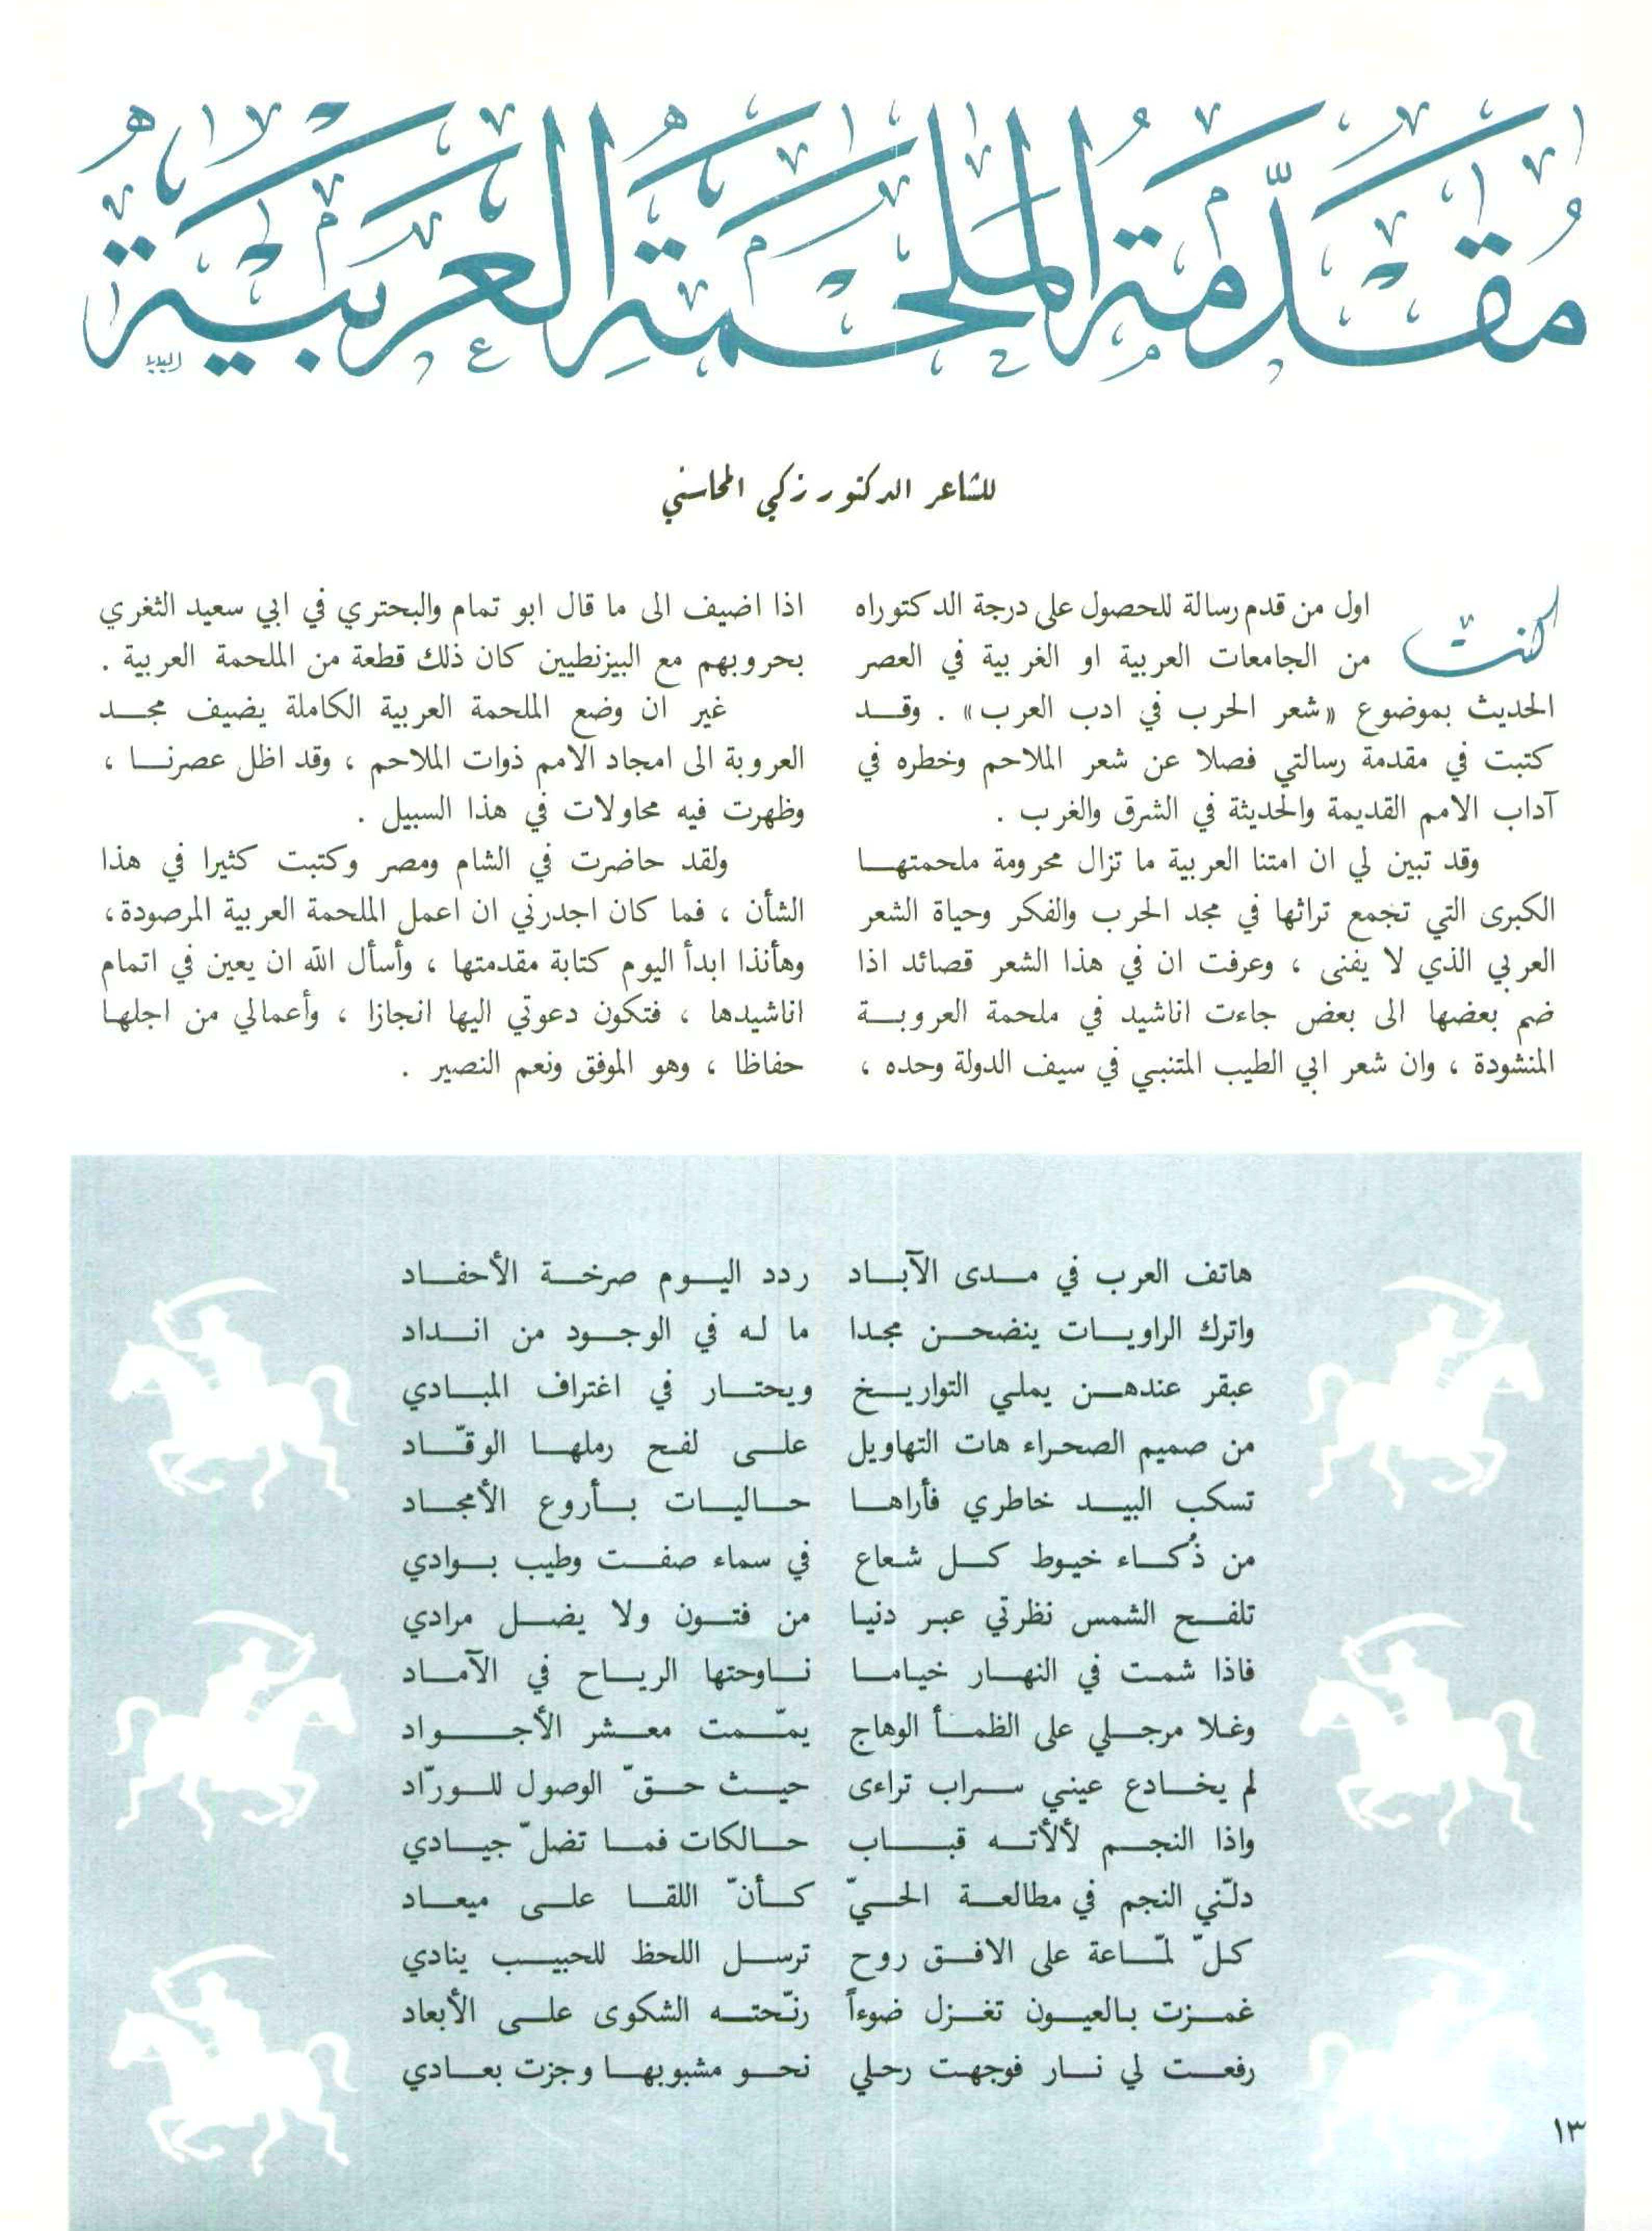 مقدّمة الملحمة العربية
للشاعر الدكتور زكي المحاسني
كنت اول من قدم رسالة للحصول على درجة الدكتوراه
من الجامعات العربية او الغربية في العصر
الحديث بموضوع «شعر الحرب في ادب العرب» . وقد
كتبت في مقدمة رسالتي فصلا عن شعر الملاحم وخطره في
آداب الامم القديمة والحديثة في الشرق والغرب .
وقد تبين لي ان امتنا العربية ما تزال محرومة ملحمتها
الكبرى التي تجمع تراثها في مجد الحرب والفكر وحياة الشعر
العربي الذي لا يفنى ، وعرفت ان في هذا الشعر قصائد اذا
ضم بعضها الى بعض جاءت اناشيد في ملحمة العروبة
المنشودة ، وان شعر ابي الطيب المتنبي في سيف الدولة وحده ،
اذا اضيف الى ما قال ابو تمام والبحتري في ابي سعيد الثغري
بحروبهم مع البيزنطيين كان ذلك قطعة من الملحمة العربية .
غير ان وضع الملحمة العربية الكاملة يضيف مجد
العروبة الى امجاد الامم ذوات الملاحم ، وقد اظل عصرنا ،
وظهرت فيه محاولات في هذا السبيل .
ولقد حاضرت في الشام ومصر وكتبت كثيرا في هذا
الشأن ، فما كان اجدرني ان اعمل الملحمة العربية المرصودة ،
وهأنذا ابدأ اليوم كتابة مقدمتها ، وأسأل الله ان يعين في اتمام
اناشيدها ، فتكون دعوتي اليها انجازا ، وأعمالي من اجلها
حفاظا ، وهو الموفق ونعم النصير .
هاتف العرب في مدى الآباد ردد اليوم صرخة الأحفاد
واترك الراويات ينضحن مجدا ما له في الوجود من انداد
عبقر عندهن يملي التواريخ ويحتار في اغتراف المبادي
من صميم الصحراء هات التهاويل على لفح رملها الوقّاد
تسكب البيد خاطري فأراها حاليات بأروع الأمجاد
من ذُكاء خيوط كل شعاع في سماء صفت وطيب بوادي
تلفح الشمس نظرتي عبر دنيا من فتون ولا يضل مرادي
فاذا شمت في النهار خياما ناوحتها الرياح في الآماد
وغلا مرجلي على الظمأ الوهاج يمّمت معشر الأجواد
لم يخادع عيني سراب تراءى حيث حقّ الوصول للورّاد
واذا النجم لألأته قباب حالكات فما تضلّ جيادي
دلّني النجم في مطالعة الحيّ كأنّ اللقا على ميعاد
كلّ لمّاعة على الافق روح ترسل اللحظ للحبيب ينادي
غمزت بالعيون تغزل ضوءاً رنّحته الشكوى على الأبعاد
رفعت لي نار فوجهت رحلي نحو مشبوبها وجزت بعادي
١٣